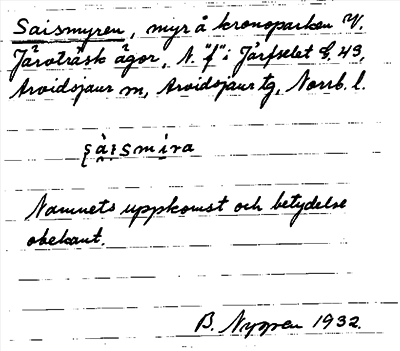 Saismyren, myr å kronoparken V.
Järvträsk ägor, N. "f" i Järfselet G. 49,
Arvidsjaur m, Arvidsjaur tg, Norrb. l.
Namnets uppkomst och betydelse
obekant.
B. Nygren 1932.